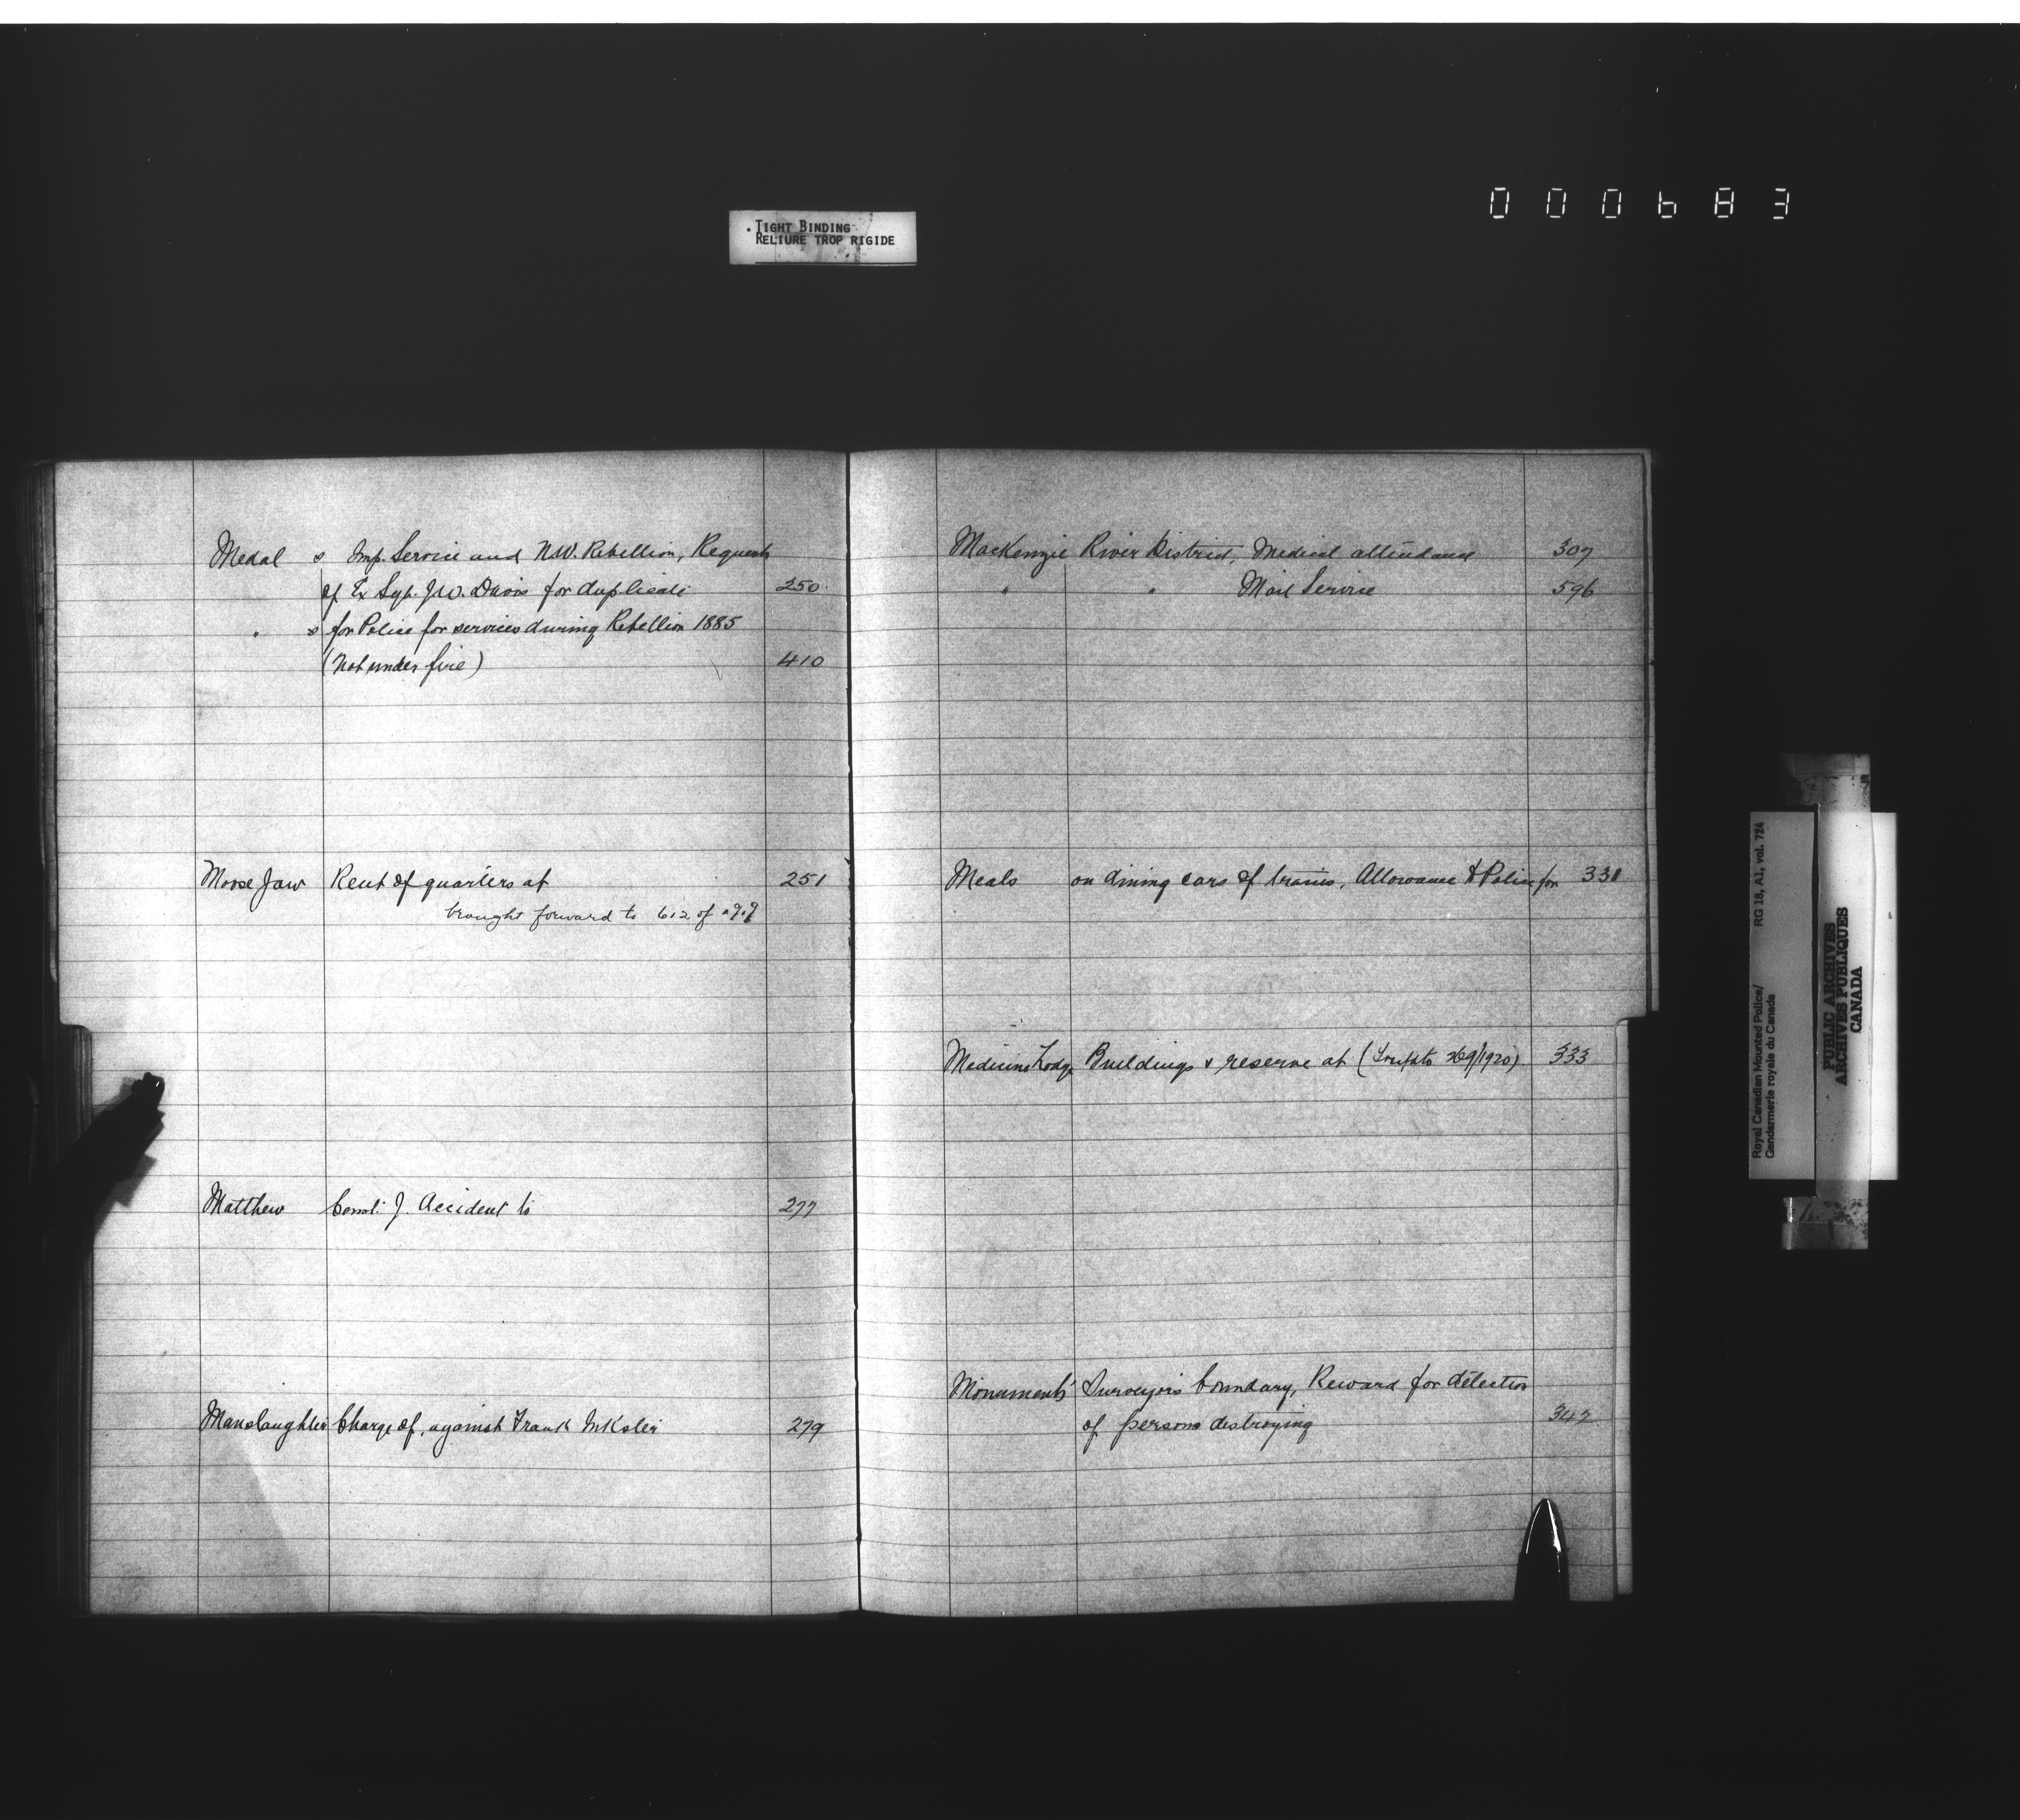 000683
TIGHT BINDING
RELIURE TROP RIGIDE
Medal s Imp. Service and N.W. Rebellion, Request
of Ex Sgt. J.W. Davis for duplicate 250
" s for Police for services during Rebellion 1885
(Not under fire) 410
Moose Jaw Rent of quarters at 251
brought forward to 612 of
Matthew Const. J. Accident to 277
Manslaughter Charge of, against Frank 279
MacKenzie River District, Medical attendance 307
" " Mail Service 596
Meals on dining cars of trains, Allowance to Police for 331
Medicine Lodge Buildings & reserve at ( 269/1920) 333
Monuments Surveyors boundary, Reward for detection
of persons destroying 342
Royal Canadian Mounted Police/ RG 18, A1, vol. 724
Gendarmerie royale du Canada
PUBLIC ARCHIVES
ARCHIVES PUBLIQUES
CANADA